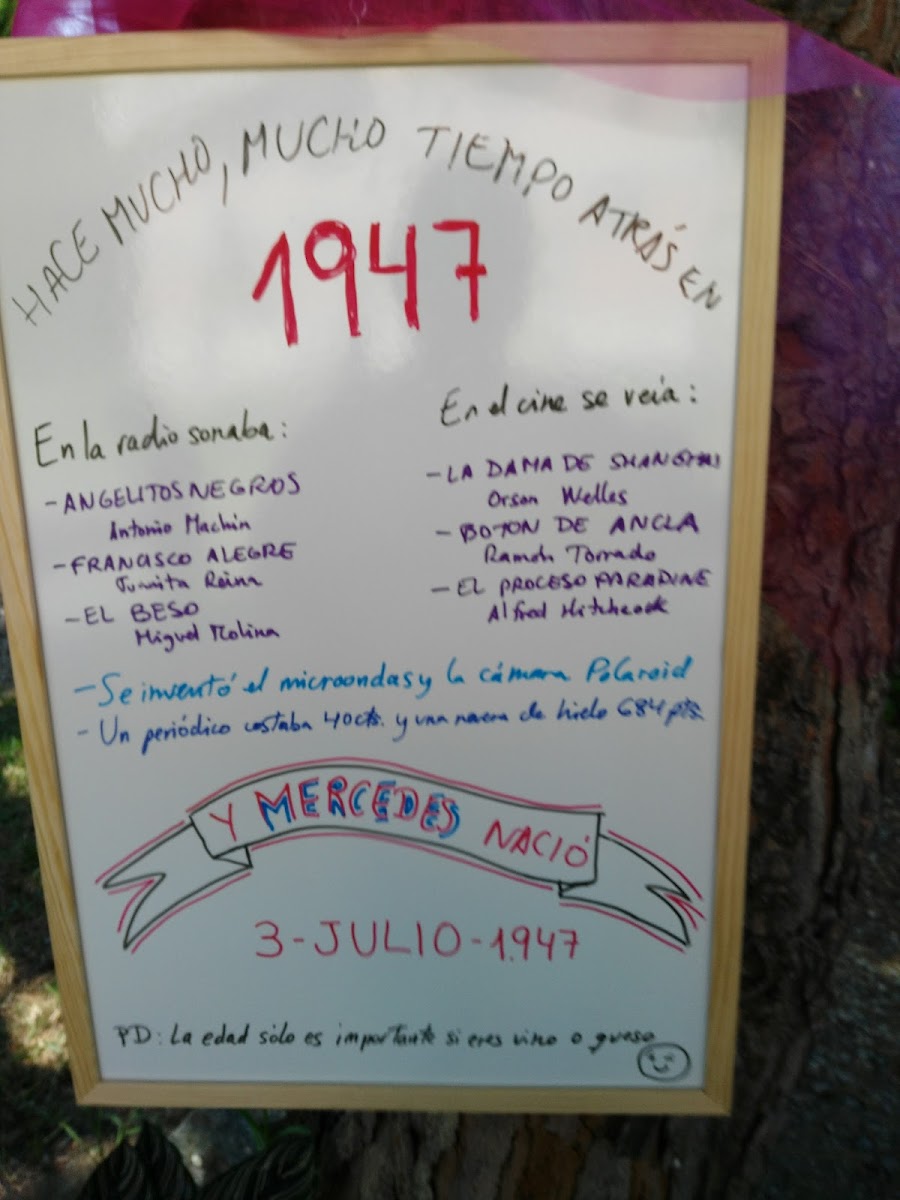 HACE MUCHO, MUCHO TIEMPO ATRÁS EN
1947
En la radio sonaba:
- ANGELITOS NEGROS
Antonio Machin
- FRANCISCO ALEGRE
Juanita Reina
- EL BESO
Miguel Molina
En el cine se veía:
- LA DAMA DE SHANGHAI
Orson Welles
- BOTON DE ANCLA
Ramón Torrado
- EL PROCESO PARADINE
Alfred Hitchcock
- Se inventó el microondas y la cámara Polaroid
- Un periódico costaba 40 cts. y una nevera de hielo 684 pts.
Y MERCEDES NACIÓ
3-JULIO-1.947
PD: La edad sólo es importante si eres vino o queso